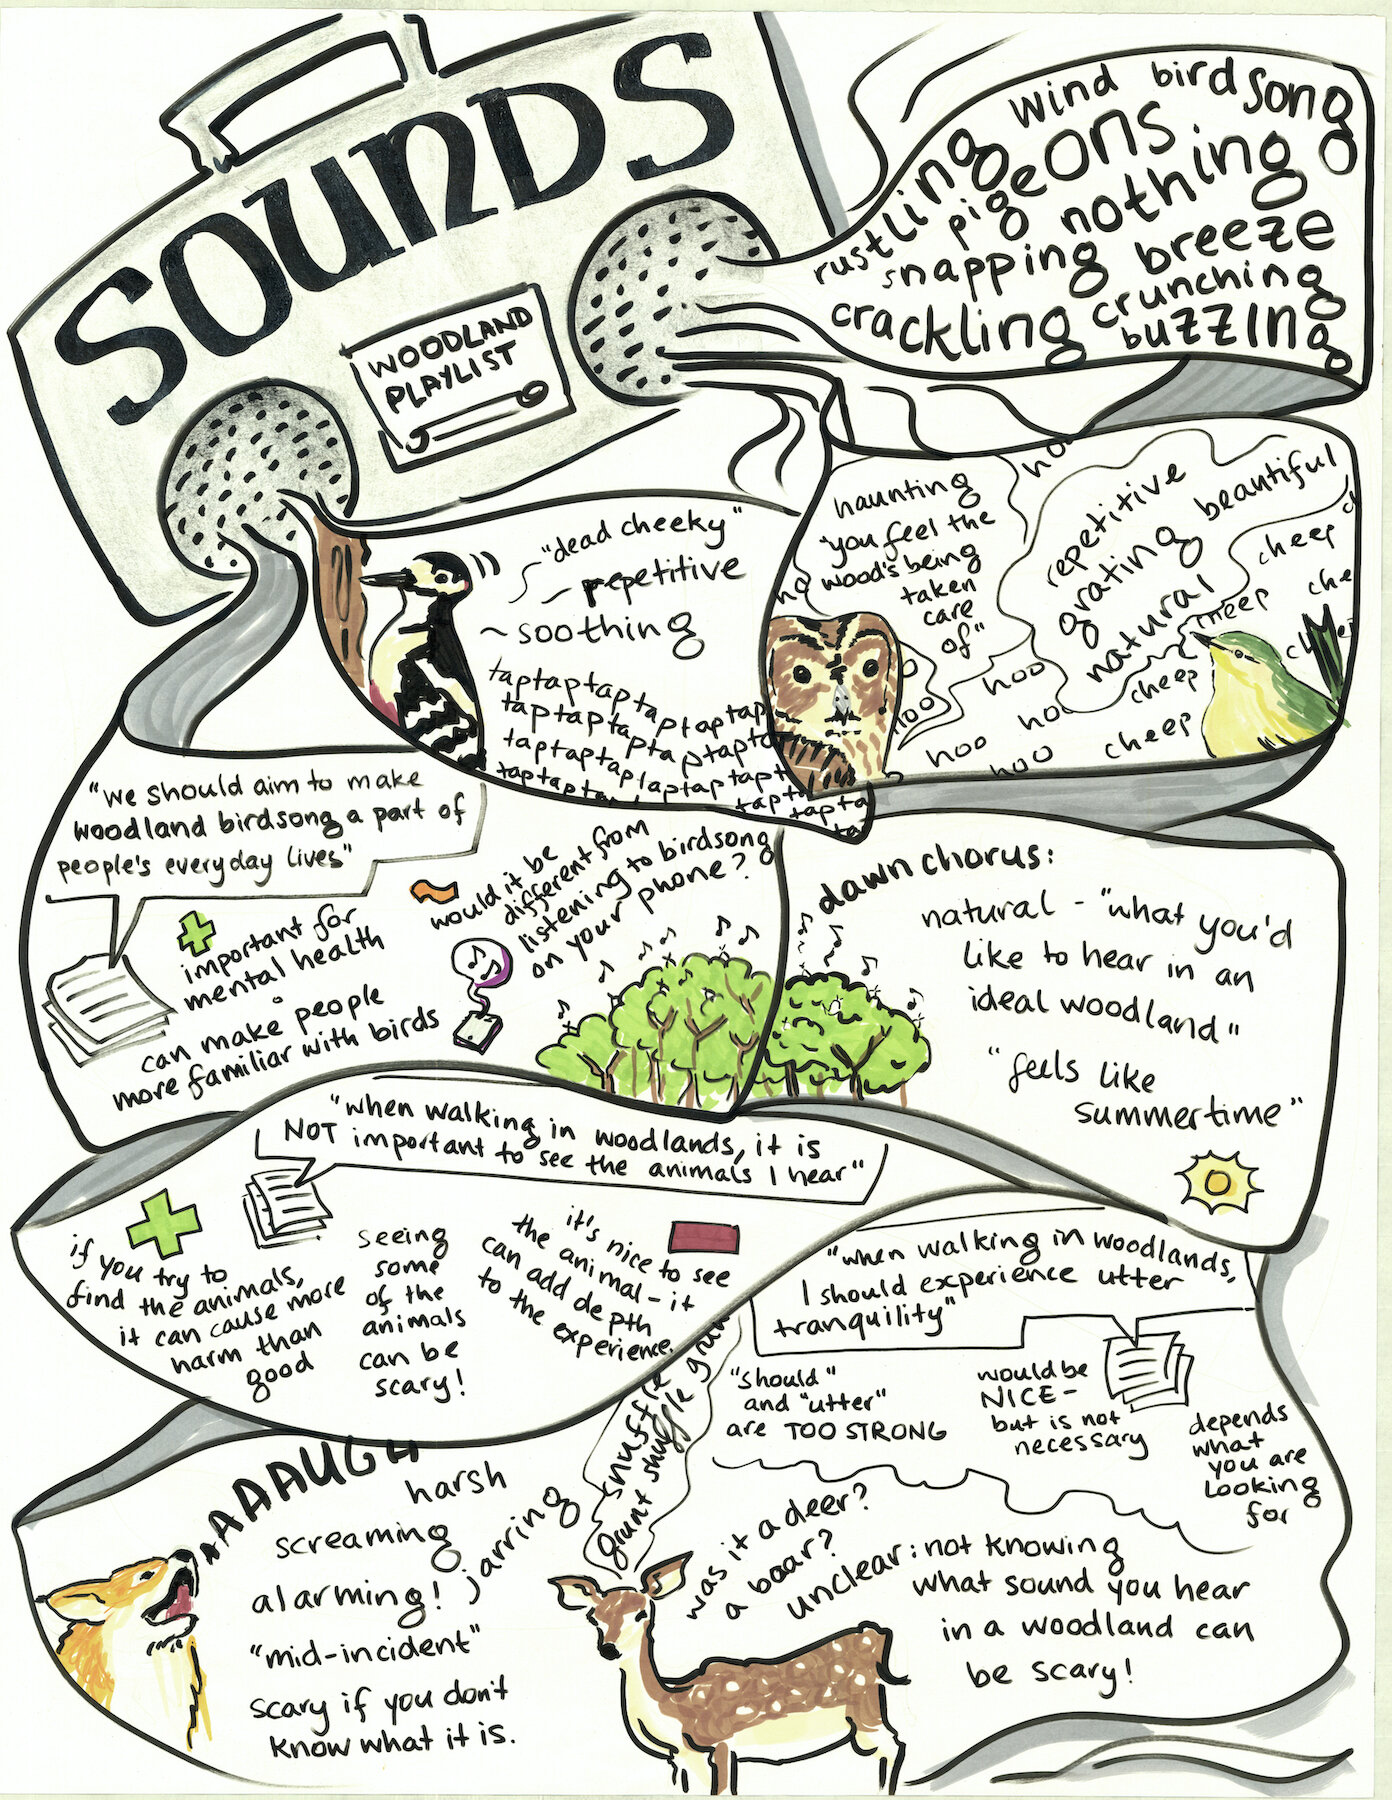 SOUNDS
WOODLAND
PLAYLIST
wind birdsong
rustling pigeons
snapping nothing
crackling breeze
crunching
buzzing
"dead cheeky"
~ repetitive
~ soothing
taptaptaptaptaptaptap
taptaptaptaptaptapta
taptaptaptaptaptapt
taptaptap
tapt
tapta
ta
haunting
"you feel the
wood's being
taken
care
of"
hoo
ho
hoo
hoo
hoo
hoo
ho
hoo
repetitive
grating beautiful
natural
cheep
cheep
cheep
cheep
"we should aim to make
woodland birdsong a part of
people's everyday lives"
important for
mental health
can make people
more familiar with birds
would it be
different from
listening to birdsong
on your phone?
dawn chorus:
natural - "what you'd
like to hear in an
ideal woodland"
"feels like
summertime"
"when walking in woodlands, it is
NOT important to see the animals I hear"
if you try to
find the animals,
it can cause more
harm than
good
seeing
some
of the
animals
can be
scary!
it's nice to see
the animal - it
can add depth
to the experience.
"when walking in woodlands,
I should experience utter
tranquility"
"should"
and "utter"
are TOO STRONG
would be
NICE -
but is not
necessary
depends
what
you are
looking
for
AAAAUGH
harsh
screaming
jarring
alarming!
"mid-incident"
scary if you don't
know what it is.
snuffle
grunt snuffle grun
was it a deer?
a boar?
unclear: not knowing
what sound you hear
in a woodland can
be scary!